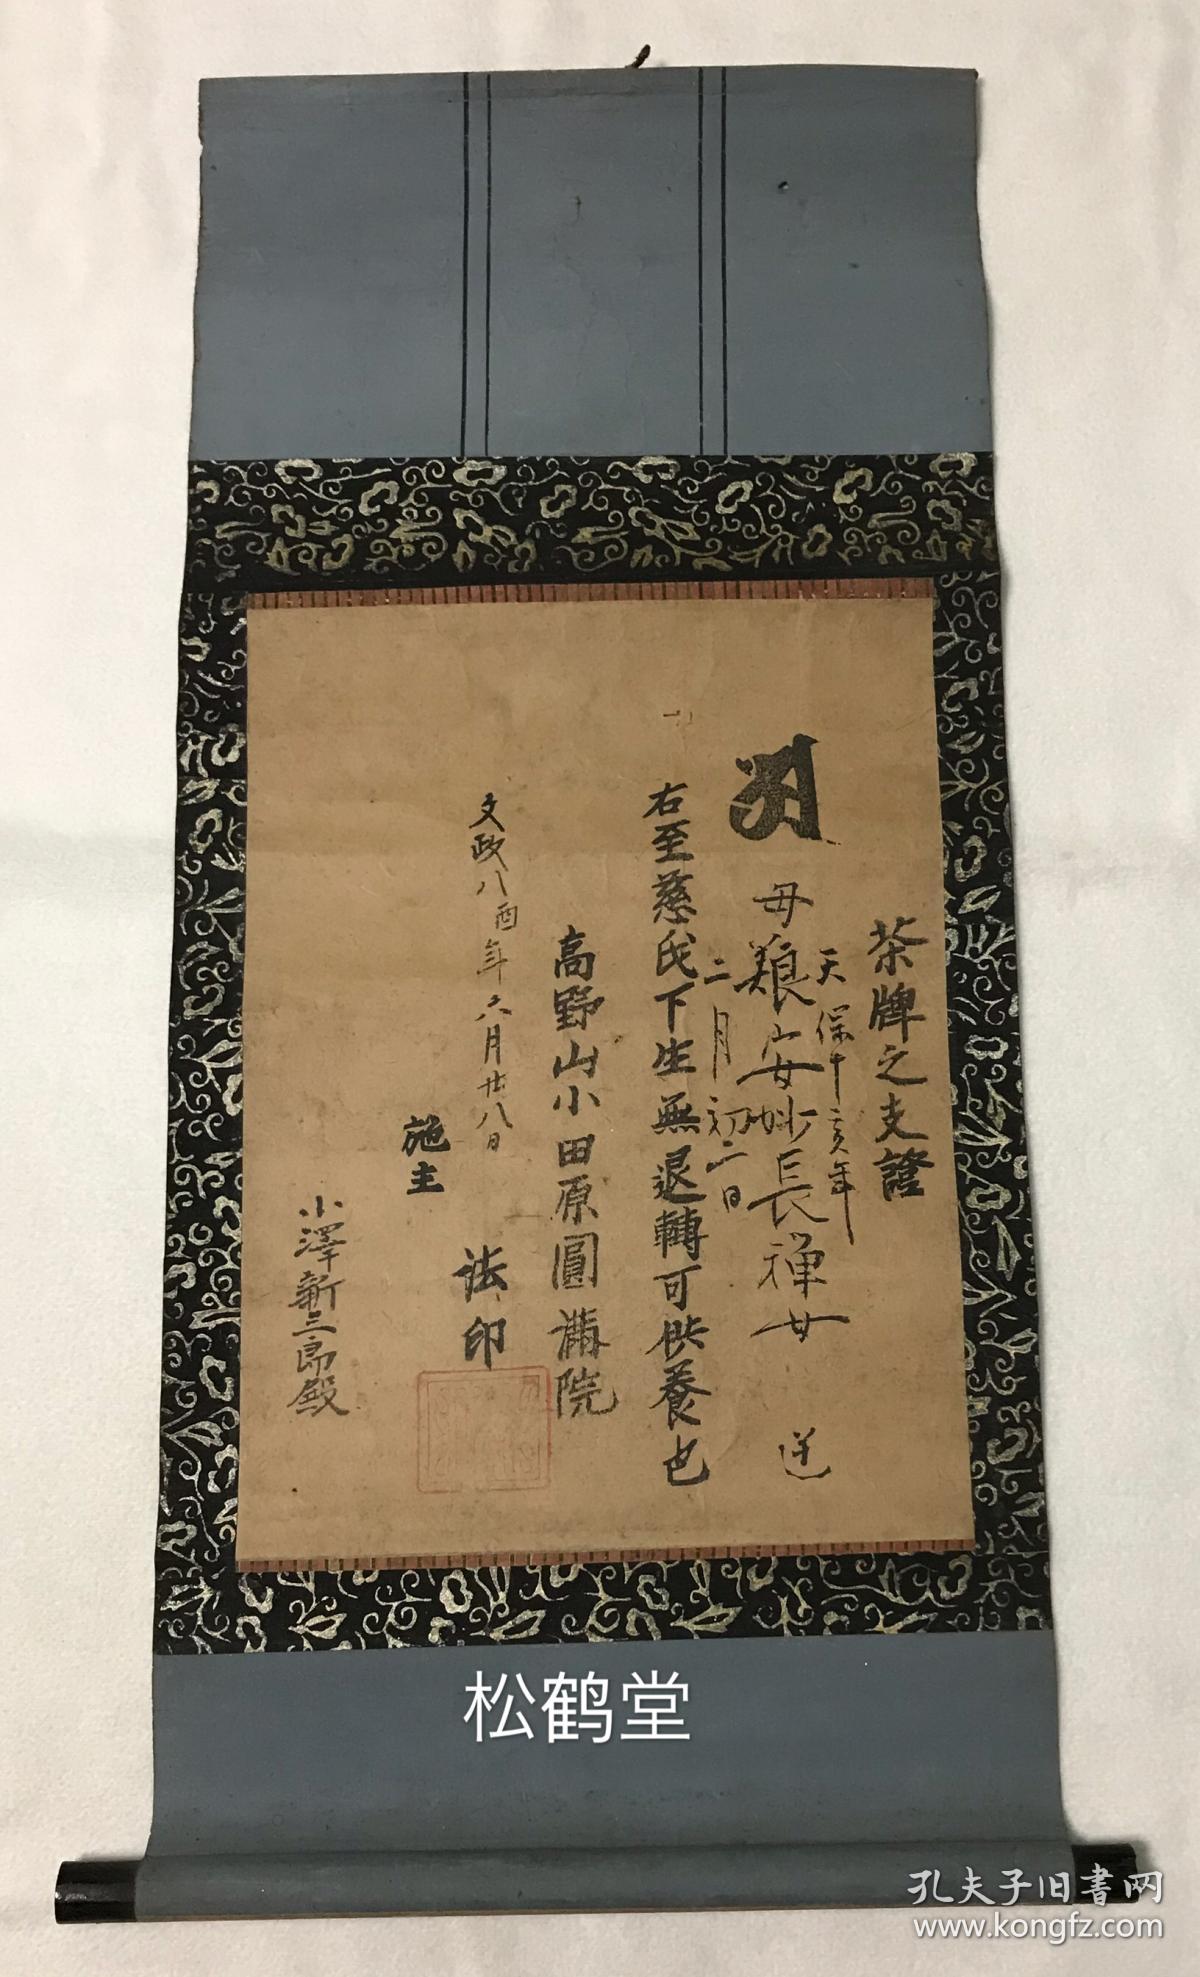 茶牌之支證
天保十亥年
母 娘安妙長禅女 逆
二月初二日
右至慈氏下生無退轉可供養也
高野山小田原圓満院
文政八酉年六月廿八日
法印
施主
小澤新三郎殿
松鹤堂
孔夫子旧書网
www.kongfz.com